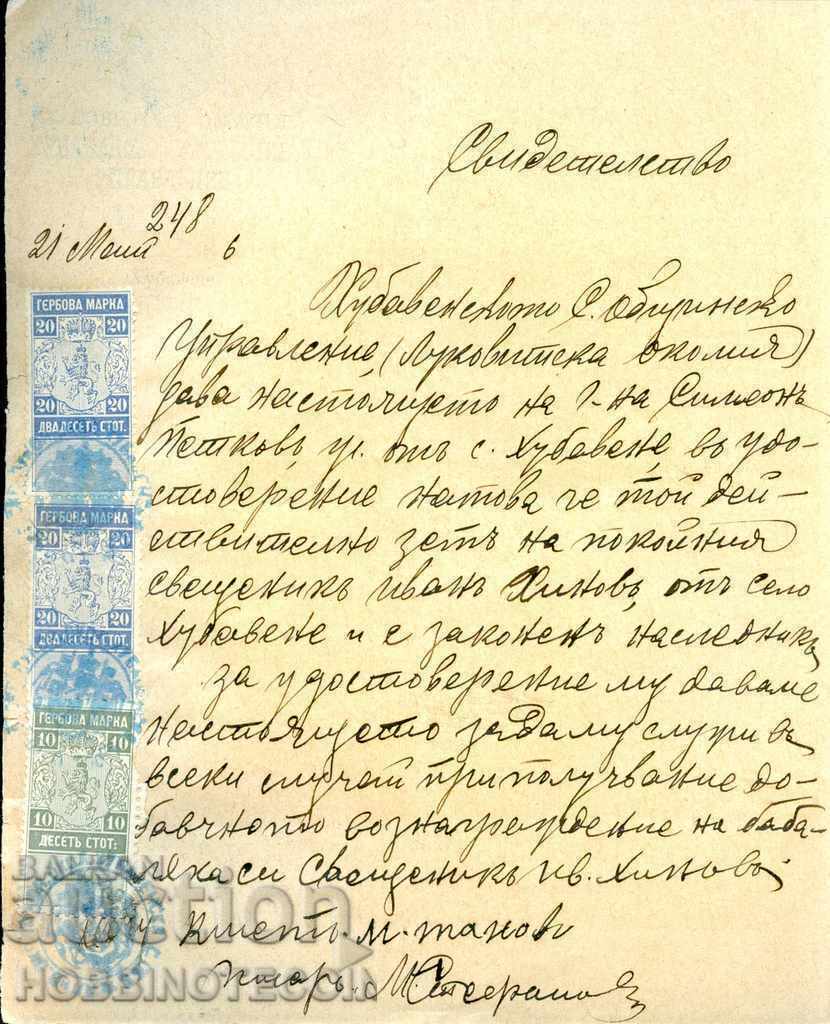 Свидетелство
248
21 Маий 6
Хубавенското С. Общинско
Управление, (Луковитска околия)
дава настоящето на г-на Симеонъ
Петковъ, ул. отъ с. Хубавене, въ удо-
стоверение на това че той дей-
ствително зетъ на покойния
свещеникъ Иванъ Хиновъ, отъ село
Хубавене и е законенъ наследникъ
за удостоверение му даваме
настоящето за да му служи въ
всеки случай при получвание до-
бавчното вознаграждение на баба-
лъка си Свещеникъ Ив. Хиновъ.
Кметъ. М. Танов
Писарь. М.
ГЕРБОВА МАРКА
20 20
20 20
ДВАДЕСЕТЬ СТОТ.
ГЕРБОВА МАРКА
20 20
20 20
ДВАДЕСЕТЬ СТОТ.
ГЕРБОВА МАРКА
10 10
10 10
ДЕСЕТЬ СТОТ.
BALKAN
auction
HOBBINOTECOIN